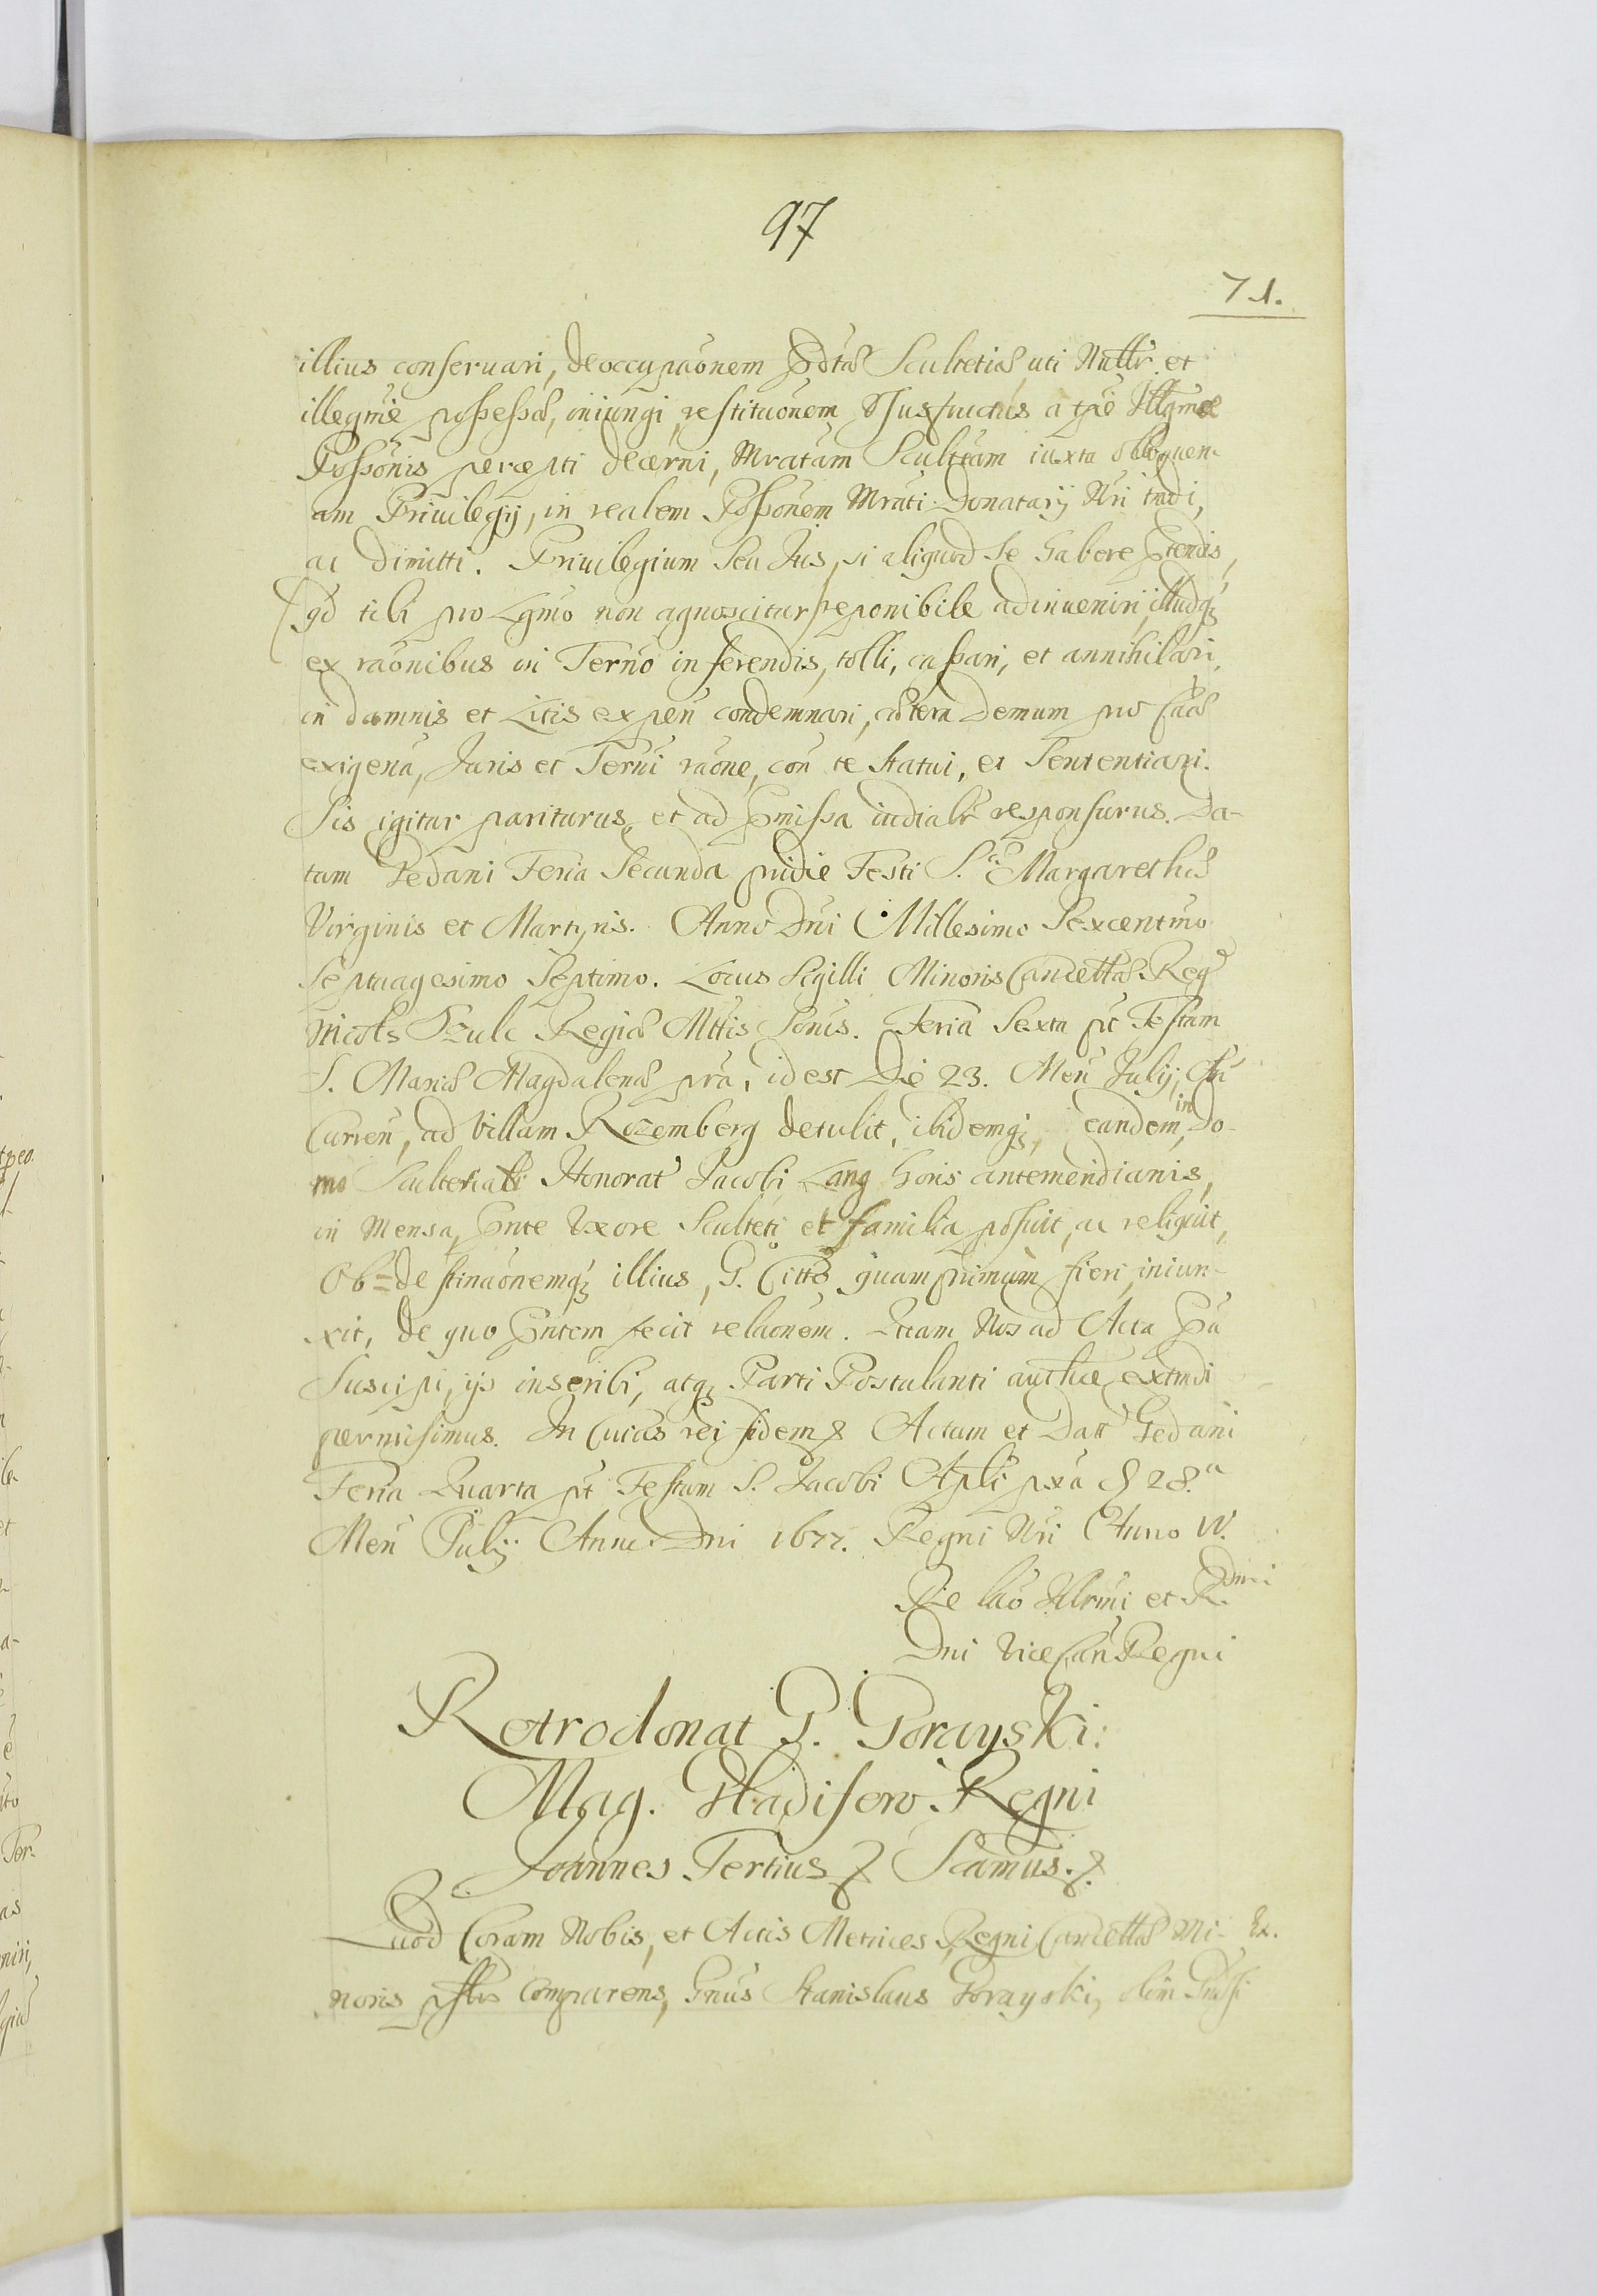 97
71.
illius conseruari, deoccupaōnem Pdtæ Scultetiæ, uti Nullr. et
illegmē possessæ, iniungi, restituōnem Vsusfructus a tpē Illgmæ
Possōnis percepti decerni, Mratam Scultēam iuxta obloquen-
am Priuilegij, in realem Possōnem Mrāti Donatarij Nri tradi,
ac dimitti. Priuilegium Seu Jus, si aliquod Se habere Ptendis,
(qd tibi pro Lgmo non agnoscitur) reponibile adinueniri, illudq;
ex raōnibus in Ternō inferendis, tolli, cassari, et annihilari,
in damnis et Litis expen condemnari, cætera demum pro Caæ
exigena, Juris et Terni raōne, con te statui, et Sententiari.
Sis igitur pariturus, et ad Pmissa iudialr responsurus. Da-
tum Gedani Feria Secunda pridie Festi S. Margarethæ
Virginis et Martyris. Anno Dni Millesimo Sexcentmo
Septuagesimo Septimo. Locus Sigilli Minoris Cancellæ Reg
Nicols Szulc Regiæ Mttis Jonis. Feria Sexta pt Festum
S. Mariæ Magdalenæ pxa, id est Die 23. Men Julij, Ani
Curren, ad Villam Rozemberg detulit, ibidemq; eandem, in Do-
mo Scultetiali Honorat Jacobi Lang horis antemeridianis,
in Mensa, Pnte Vxore Sculteti et familia posuit, ac reliquit,
Obdestinaōnemq; illius, G. Citto quamprimum fieri, iniun-
xit, de quo Pntem fecit relaōnem. Quam Nos ad Acta Pa
Suscipi, ijs inscribi, atq; Parti Postulanti authæ extradi
permisimus. In Cuius rei fidem & Actum et Datt Gedani
Feria Quarta pt Festum S. Jacobi Apli pxa & 28.a
Men Julij Anno Dni 1677. Regni Nri Anno IV.
Relao Illrmi et R.dmi
Dni ViceCan Regni
Retrodonat G. Gorayski:
Mag. Gladifero Regni
Joannes Tertius & Scamus. &.
Quod Coram Nobis, et Actis Metrices Regni Cancellæ Mi-
noris pslr comparens, Gnus Stanislaus Gorayski, olim